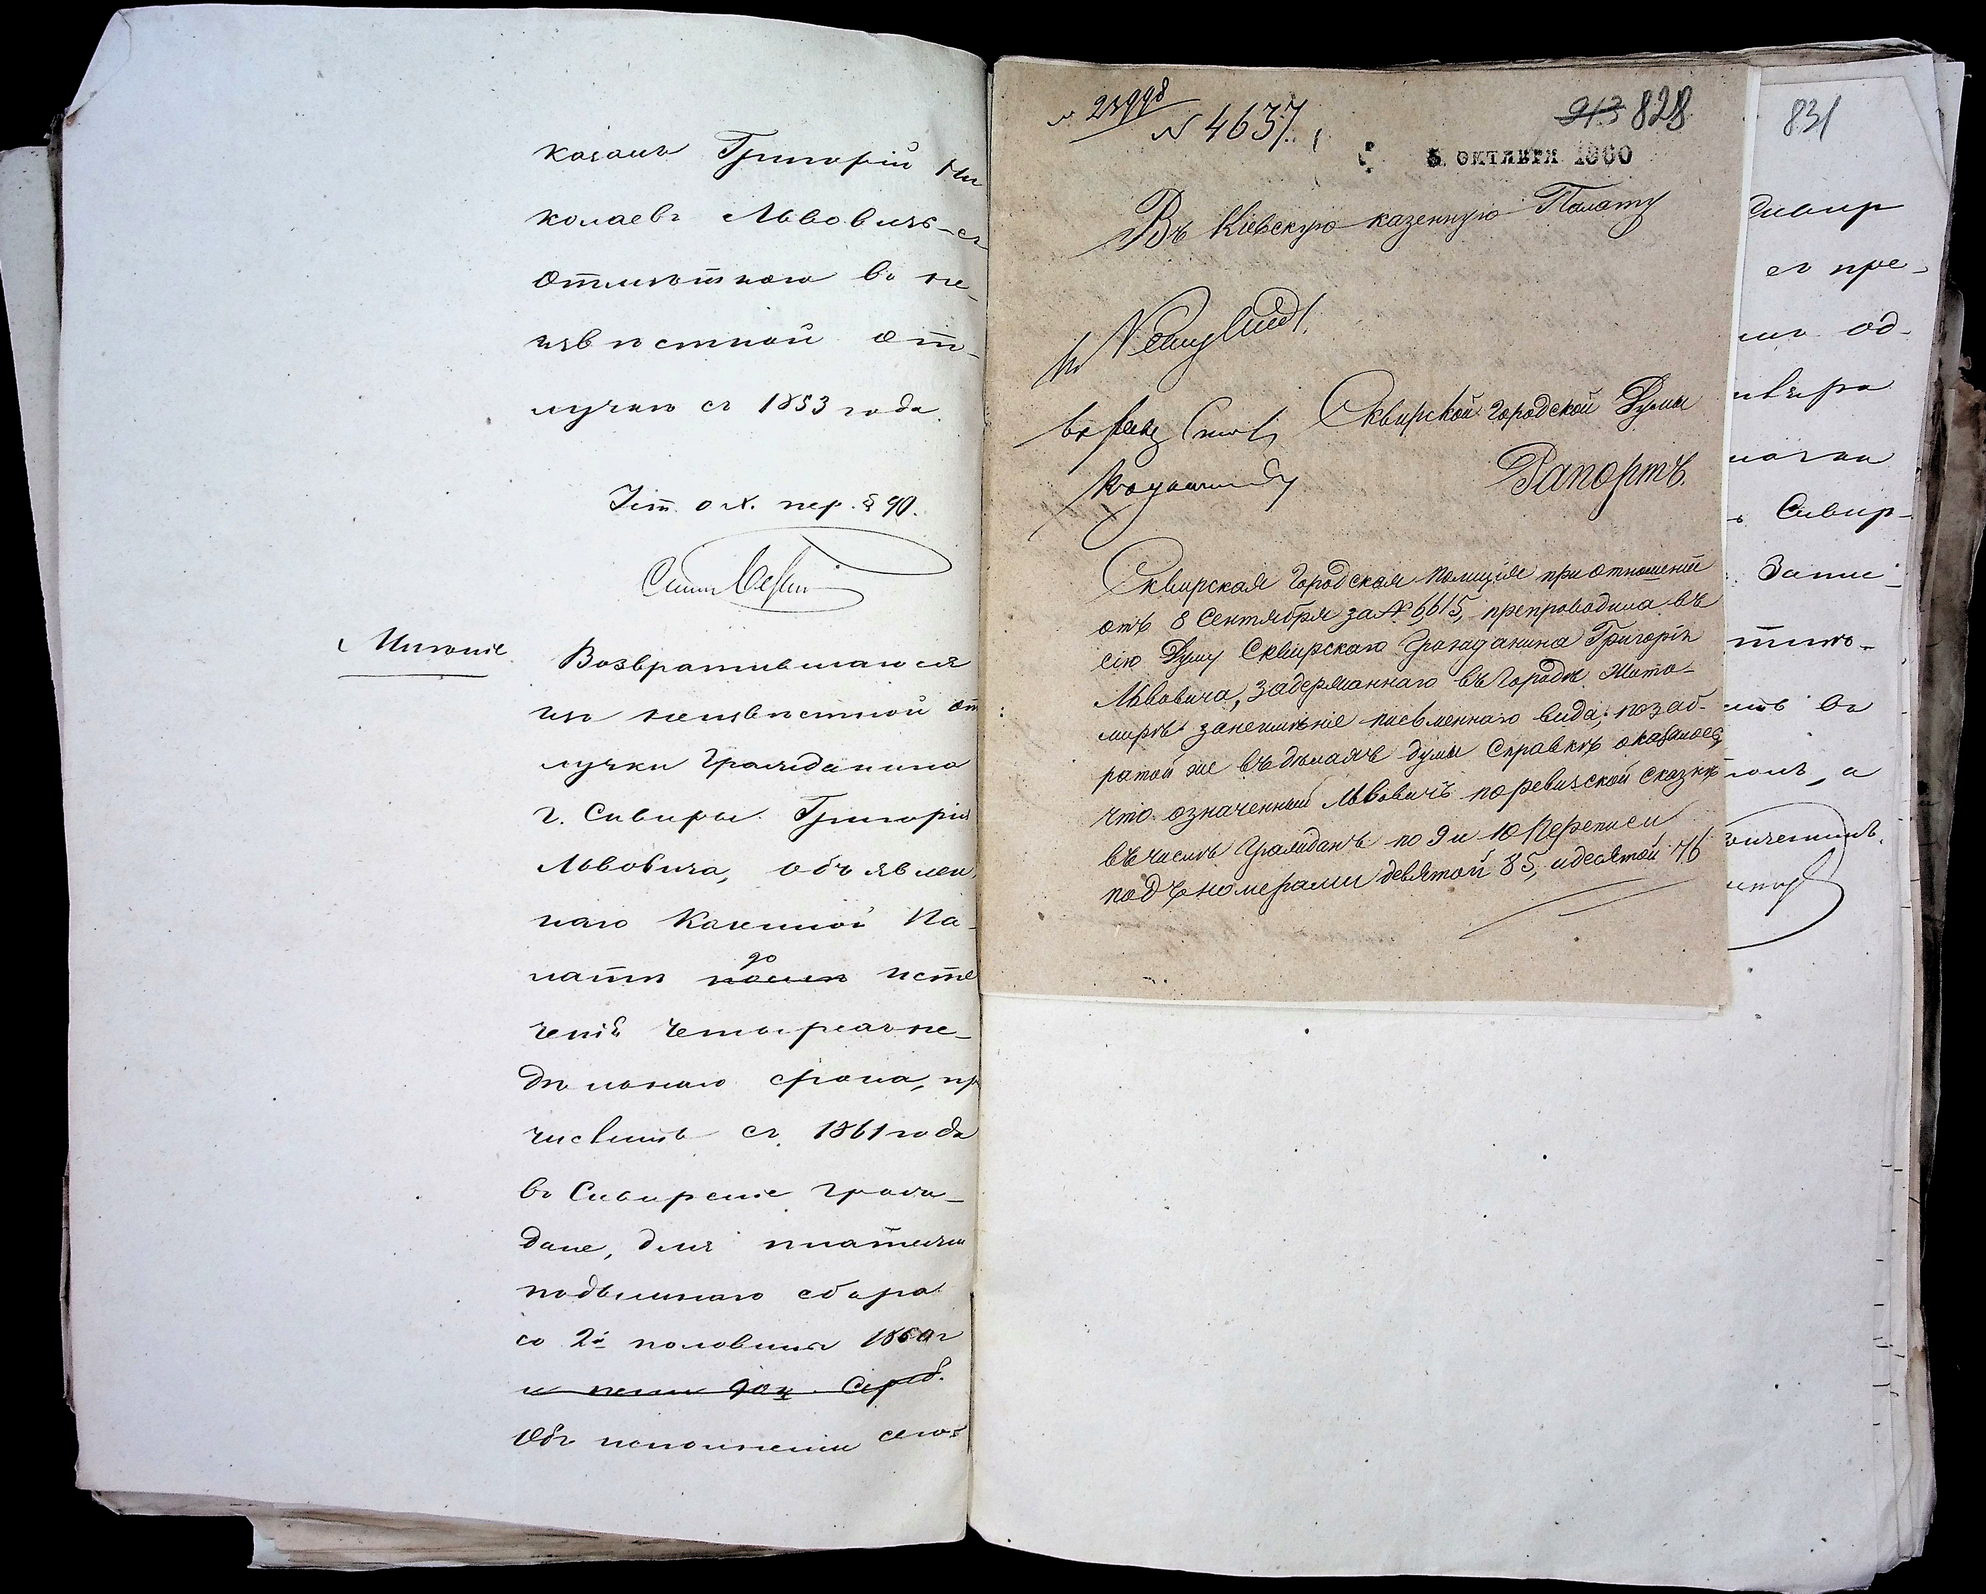 казанъ Григорій Ни
колаевъ Львовичъ съ
отмѣткою въ не-
извѣстной от-
лучкѣ съ 1853 года.
§ 90.
Мнѣніе.
Возвратившагося
изъ неизвѣстной от
лучки гражданина
г. Сквиры Григорія
Львовича, объявлен
наго Казенной Па-
латѣ послѣ до исте
ченія четырехъ не-
дѣльнаго срока, пр
числить съ 1861 года
въ Сквирскіе граж-
дане, для платежа
подымнаго сбора
со 2й половины 1860 г
и пени
Объ исполненіи сего
N 4637.
913 828
5 ОКТЯБРЯ 1860
Въ Кіевскую казенную Палату
Сквирской городской Думы
Рапортъ.
Сквирская Городская Полиція при отношеніи
отъ 8 Сентября за № 6615, препроводила въ
сію Думу Сквирскаго Гражданина Григорія
Львовича, задержаннаго въ Городѣ Жито-
мирѣ за неимѣніе письменнаго вида; по заб-
ратой же въ дѣлахъ думы Справкѣ оказалось,
что означенный Львовичъ по ревизской сказкѣ
въ числѣ Гражданъ по 9 и 10 Переписи
подъ номерами девятой 85, и десятой 76
831
Сквир
ег пре-
од-
Сквир-
Запи-
въ
а